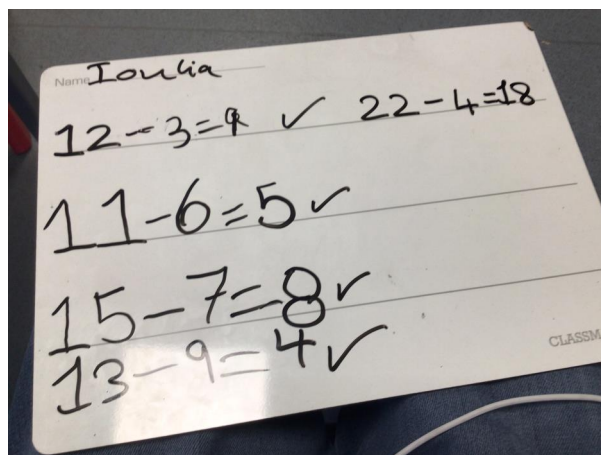 Name Ioulia
12-3=9 ✓ 22-4=18
11-6=5 ✓
15-7=8 ✓
13-9=4 ✓
CLASSM